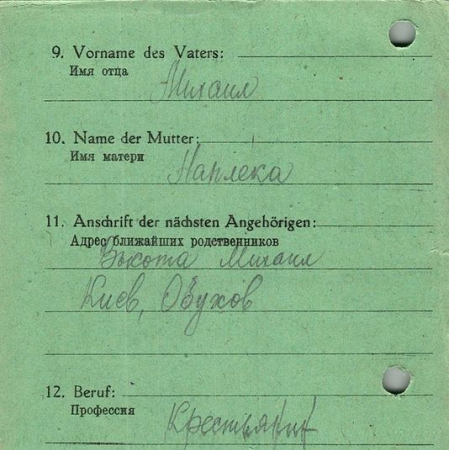 9. Vorname des Vaters:
Имя отца
Михаил
10. Name der Mutter:
Имя матери
Наплека
11. Anschrift der nächsten Angehörigen:
Адрес ближайших родственников
Выкота Михаил
Киев, Обухов
12. Beruf:
Профессия
Крестьянин